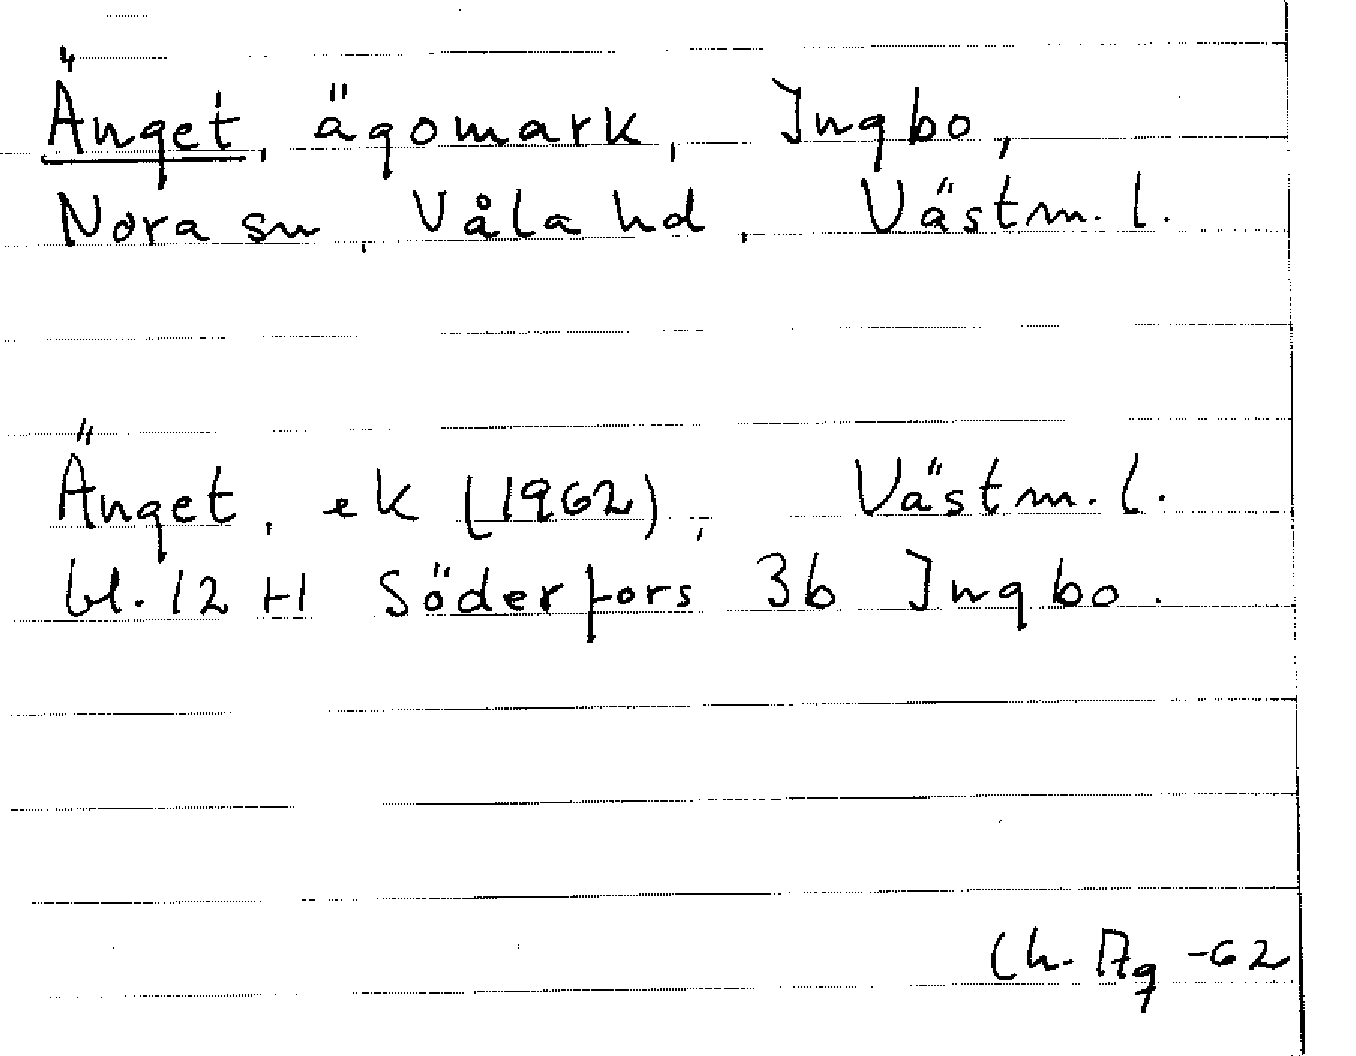 Änget, ägomark, Ingbo,
Nora sn, Våla hd, Västm. l.
Änget, ek (1962), Västm. l.
bl. 12 H Söderfors 3b Ingbo.
Ch. Ag -62